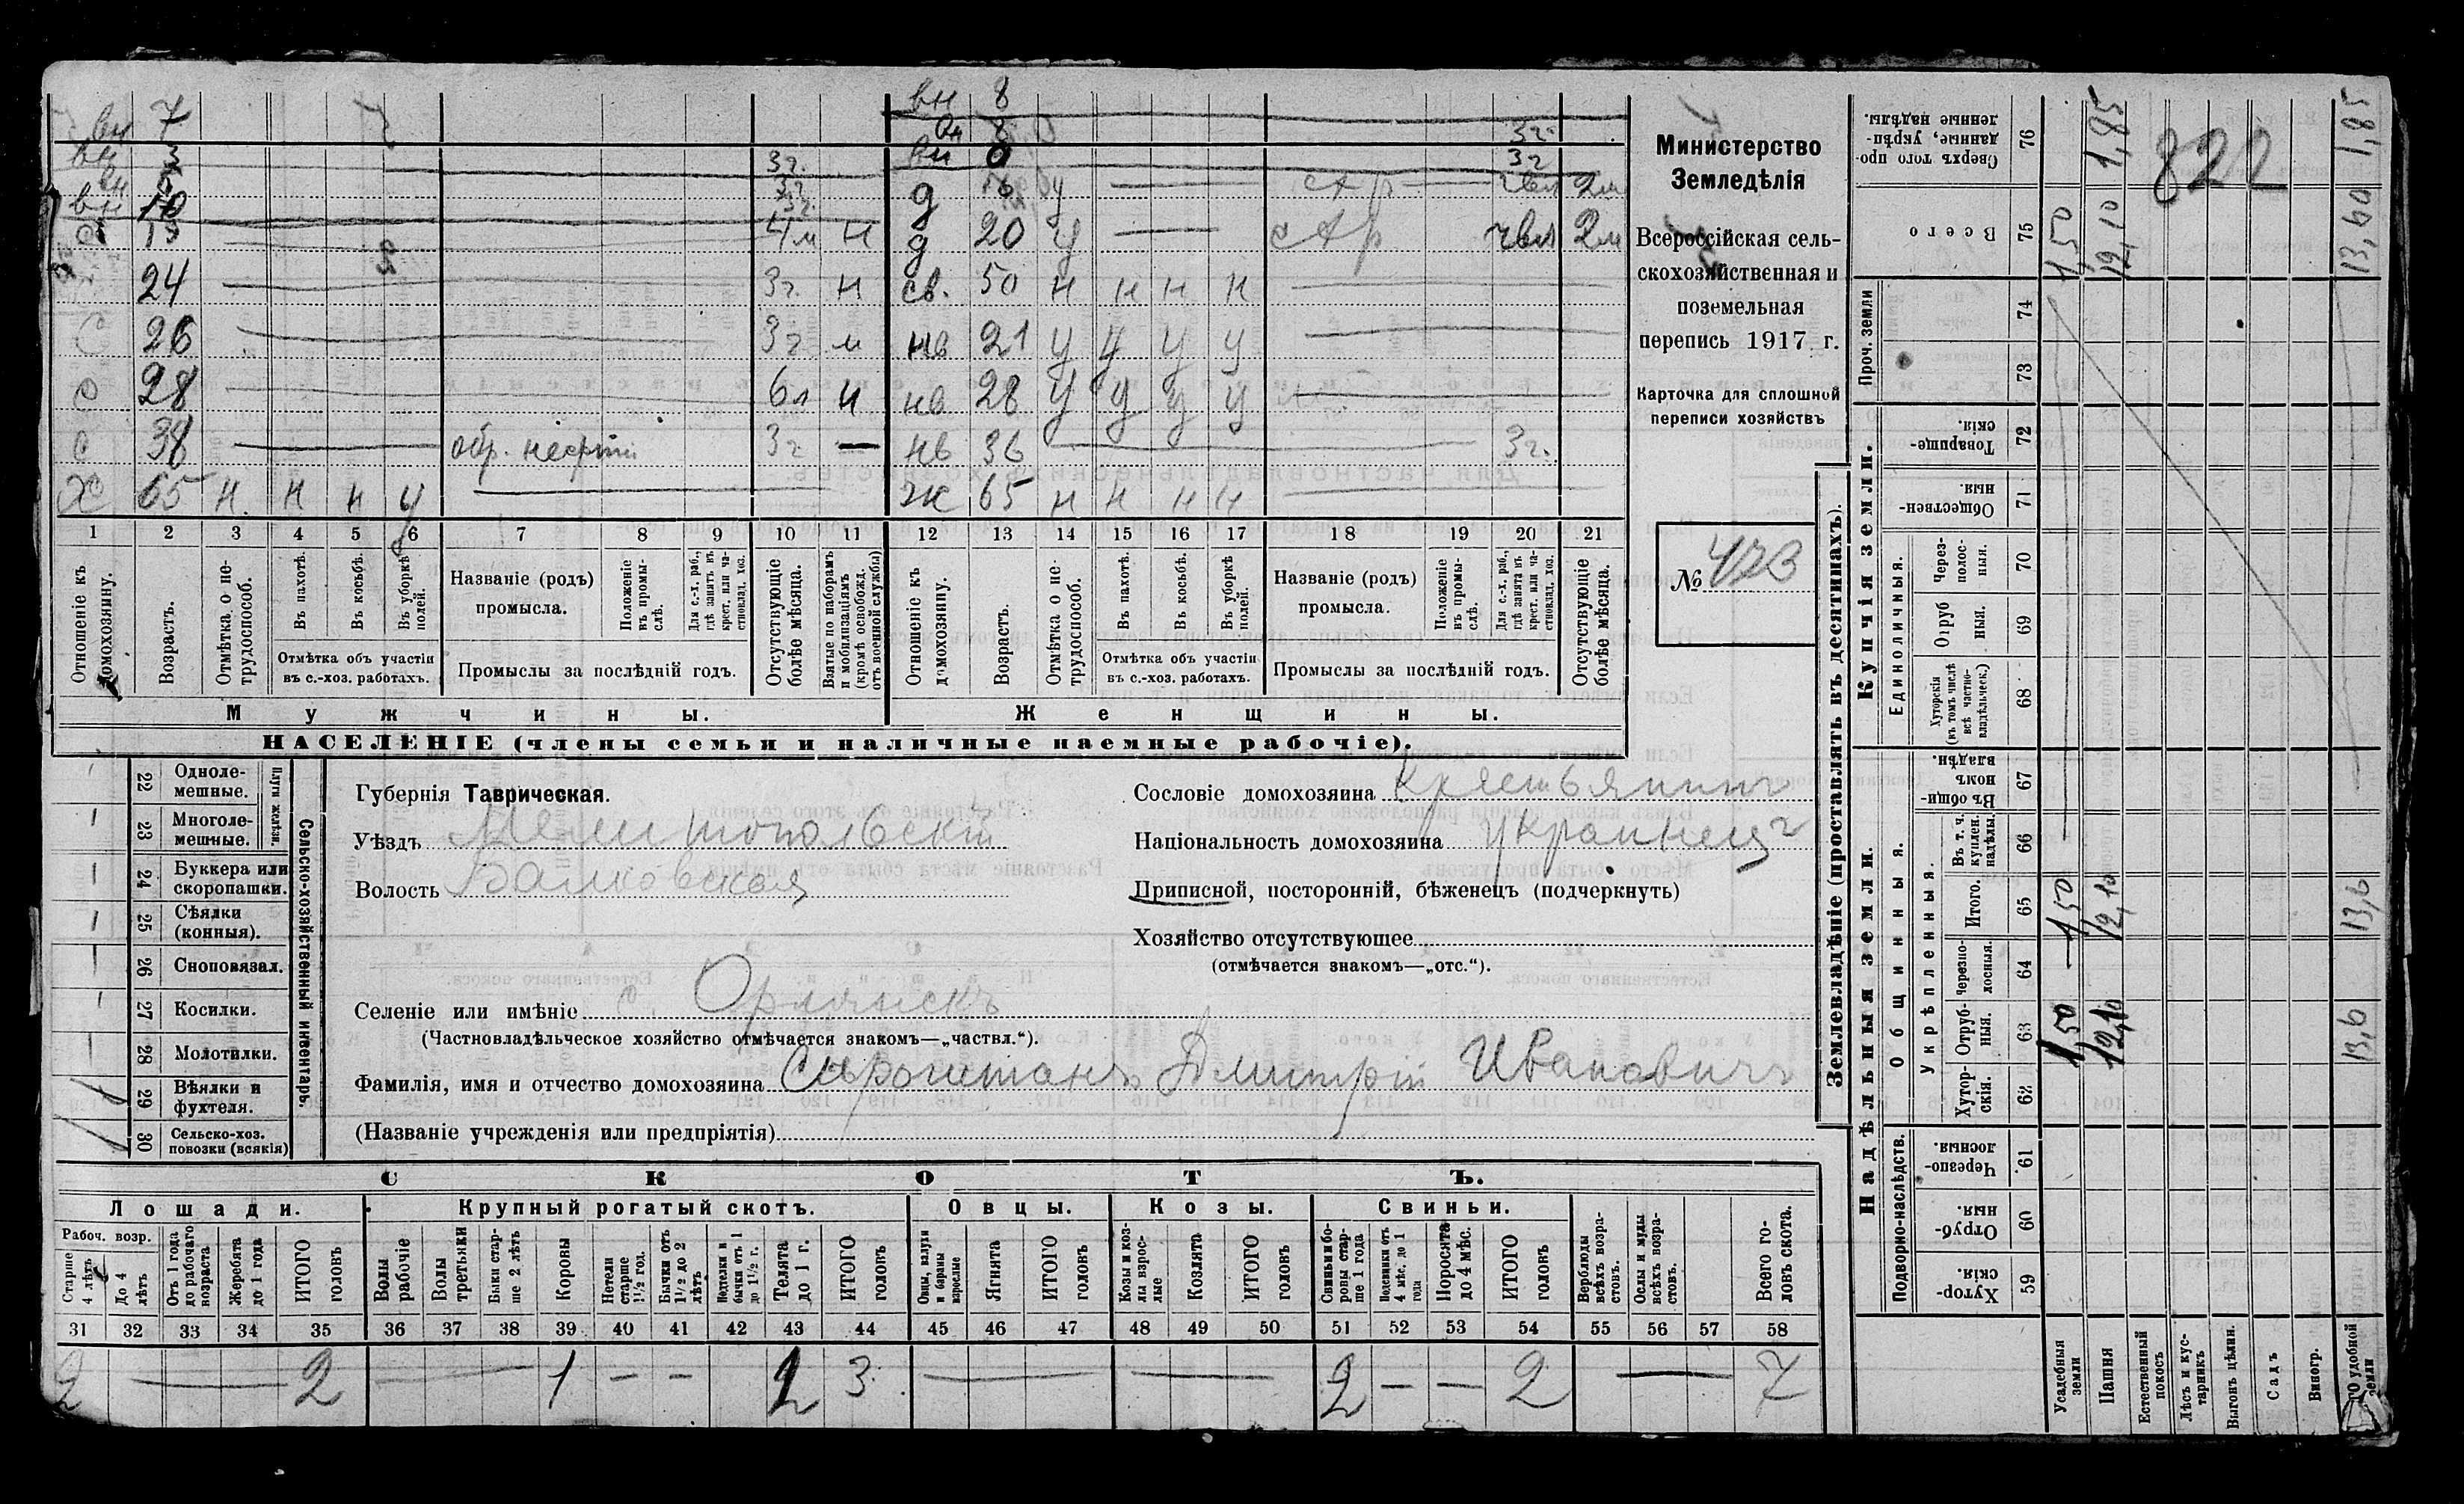 вн 7 вн 8
вн 3 3г. вн 0 3г
вн 10 3г. д у стр 2м
15 4м н д 20 у стр 2м
24 3г. н св. 50 н н н н
с 26 3г н нв 21 у у у у
с 28 6л н нв 28 у у у у
с 38 3г — нв 36 3г.
х 65 н. н н у ж 65 н н н н
1 2 3 4 5 6 7 8 9 10 11 12 13 14 15 16 17 18 19 20 21
Отношеніе къ домохозяину.
Возрастъ.
Отмѣтка о не-трудоспособ.
Въ пахотѣ.
Въ косьбѣ.
Въ уборкѣ полей.
Отмѣтка объ участіи
въ с.-хоз. работахъ.
Названіе (родъ)
промысла.
Положеніе въ промы-слѣ.
Для с.-х. раб., гдѣ занятъ въ крест. или ча-стновлад. хоз.
Промыслы за послѣдній годъ.
Отсутствующіе болѣе мѣсяца.
Взятые по наборамъ и мобилизаціямъ (кромѣ освобожд. отъ военной службы)
Отношеніе къ домохозяину.
Возрастъ.
Отмѣтка о не-трудоспособ.
Въ пахотѣ.
Въ косьбѣ.
Въ уборкѣ полей.
Отмѣтка объ участіи
въ с.-хоз. работахъ.
Названіе (родъ)
промысла.
Положеніе въ промы-слѣ.
Для с.-х. раб., гдѣ занята въ крест. или ча-стновлад. хоз.
Промыслы за послѣдній годъ.
Отсутствующіе болѣе мѣсяца.
Мужчины. Женщины.
НАСЕЛЕНІЕ (члены семьи и наличные наемные рабочіе).
Министерство
Земледѣлія
Всероссійская сель-
скохозяйственная и
поземельная
перепись 1917 г.
Карточка для сплошной
переписи хозяйствъ
№ 423
Сельско-хозяйственный инвентарь.
Плуги желѣзн.
22 Одноле-мешные.
23 Многоле-мешные.
24 Буккера или скоропашки.
25 Сѣялки (конныя).
26 Сноповязал.
27 Косилки.
28 Молотилки.
29 Вѣялки и фухтеля.
30 Сельско-хоз. повозки (всякія)
Губернія Таврическая.
Уѣздъ Мелитопольскій
Волость Балковская
Сословіе домохозяина Крестьянинъ
Національность домохозяина украинецъ
Приписной, посторонній, бѣженецъ (подчеркнуть)
Хозяйство отсутствующее
(отмѣчается знакомъ—„отс.“).
Селеніе или имѣніе с. Орлянскъ
(Частновладѣльческое хозяйство отмѣчается знакомъ—„частвл.“).
Фамилія, имя и отчество домохозяина Сыроштанъ Дмитрій Ивановичъ
(Названіе учрежденія или предпріятія)
СКОТЪ.
Лошади. Крупный рогатый скотъ. Овцы. Козы. Свиньи.
Рабоч. возр.
Старше 4 лѣтъ
До 4 лѣтъ
Отъ 1 года до рабочаго возраста
Жеребята до 1 года
ИТОГО головъ
Волы рабочіе
Волы третьяки
Быки стар-ше 2 лѣтъ
Коровы
Нетели старше 1½ год.
Бычки отъ 1½ до 2 лѣтъ
Нетелки и бычки отъ 1 до 1½ г.
Телята до 1 г.
ИТОГО головъ
Овцы, валухи и бараны взрослые
Ягнята
ИТОГО головъ
Козы и коз-лы взрос-лые
Козлята
ИТОГО головъ
Свиньи и бо-ровы стар-ше 1 года
Подсвинки отъ 4 мѣс. до 1 года
Поросята до 4 мѣс.
ИТОГО головъ
Верблюды всѣхъ возра-стовъ.
Ослы и мулы всѣхъ возра-стовъ.
Всего го-ловъ скота.
31 32 33 34 35 36 37 38 39 40 41 42 43 44 45 46 47 48 49 50 51 52 53 54 55 56 57 58
2 — 2 — 1 – – 2 3 — — 2 – – 2 — 7
Землевладѣніе (проставлять въ десятинахъ).
Надѣльныя земли. Купчія земли. Проч. земли
Подворно-наслѣдств. Общинныя. Укрѣпленныя. Единоличныя.
Сверхъ того про-данные, укрѣп-ленные надѣлы. 76 1,85 1,85
Всего 75 1,50 12,10 13,60
74
73
Товарище-скія. 72
Обществен-ныя. 71
Через-полос-ныя. 70
Отруб ныя. 69
Хуторскія (въ томъ числѣ всѣ частно-владѣльческ.) 68
Въ общи-номъ владѣн. 67
Въ т. ч. куплен. надѣлы. 66
Итого. 65 1,50 12,10 13,6
Черезпо-лосныя. 64
Отруб-ныя. 63 1,50 12,10 13,6
Хутор-скія. 62
Черезпо-лосныя 61
Отруб-ныя. 60
Хутор-скія. 59
Усадебныя земли
Пашня
Естественный покосъ
Лѣсъ и кус-тарникъ
Выгонъ цѣлин.
Садъ
Виногр.
удобной земли
822